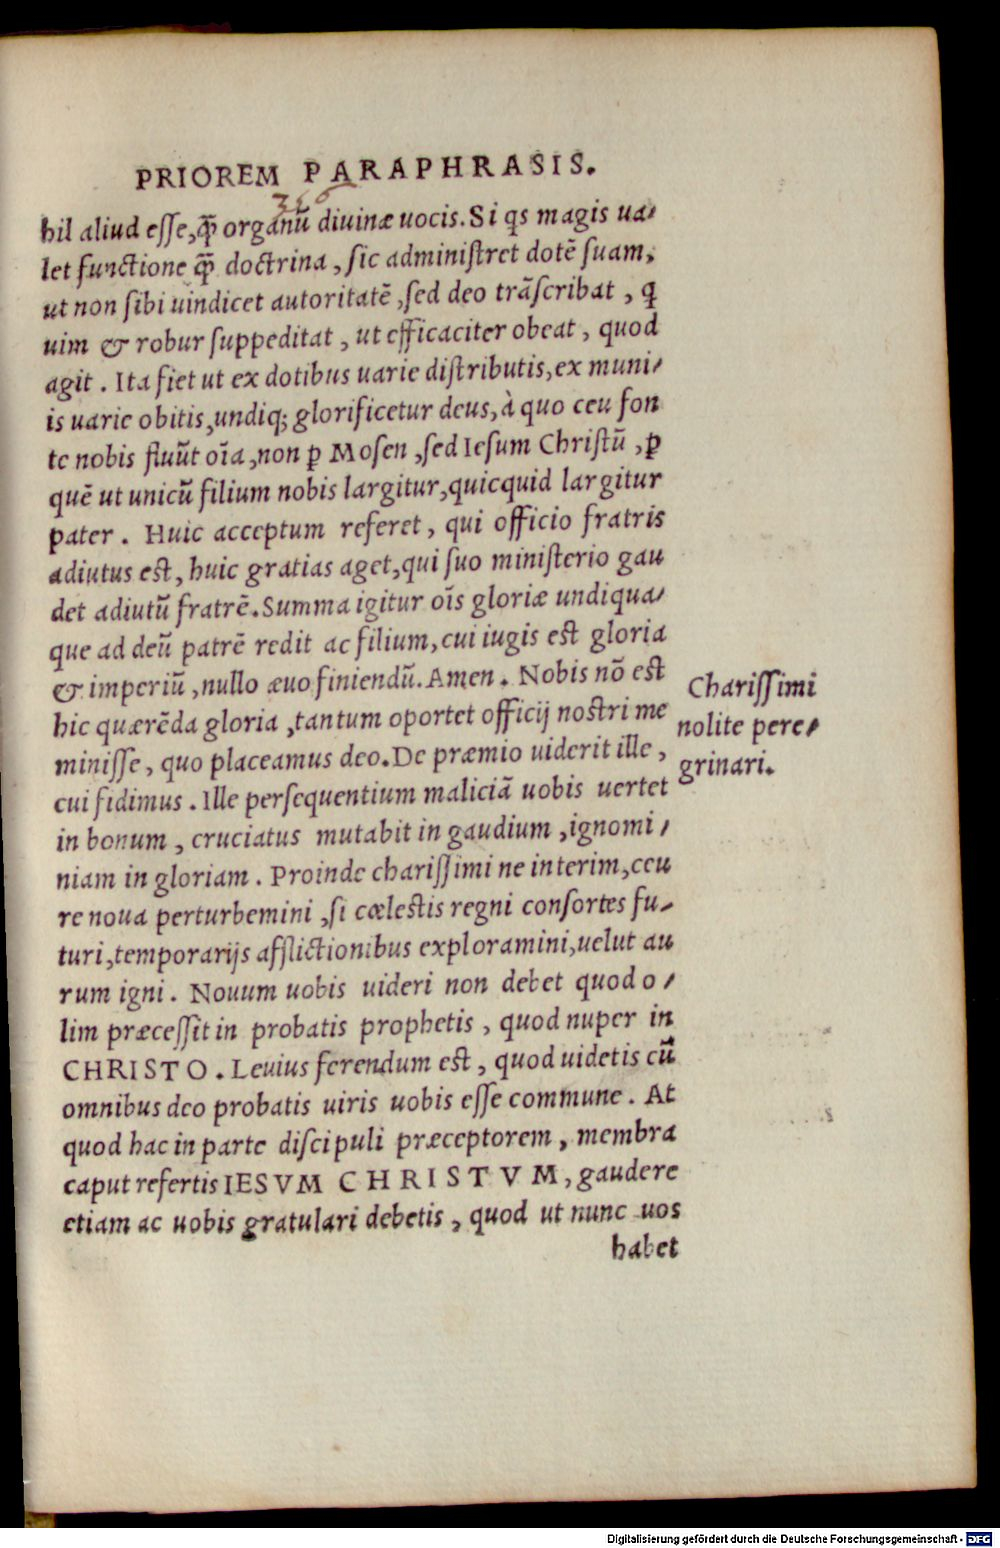 PRIOREM PARAPHRASIS.
356
hil aliud esse, q̃ organũ diuinæ uocis. Si qs magis ua⸗
let functione q̃ doctrina, sic administret dotẽ suam,
ut non sibi uindicet autoritatẽ, sed deo trãscribat, q
uim & robur suppeditat, ut efficaciter obeat, quod
agit. Ita fiet ut ex dotibus uarie distributis, ex muni⸗
is uarie obitis, undiq; glorificetur deus, à quo ceu fon
te nobis fluũt oĩa, non ꝑ Mosen, sed Iesum Christũ, ꝑ
quẽ ut unicũ filium nobis largitur, quicquid largitur
pater. Huic acceptum referet, qui officio fratris
adiutus est, huic gratias aget, qui suo ministerio gau
det adiutũ fratrẽ. Summa igitur oĩs gloriæ undiqua⸗
que ad deũ patrẽ redit ac filium, cui iugis est gloria
& imperiũ, nullo æuo finiendũ. Amen. Nobis nõ est
hic quærẽda gloria, tantum oportet officij nostri me
minisse, quo placeamus deo. De præmio uiderit ille,
cui fidimus. Ille persequentium maliciã uobis uertet
in bonum, cruciatus mutabit in gaudium, ignomi⸗
niam in gloriam. Proinde charissimi ne interim, ceu
re noua perturbemini, si cœlestis regni consortes fu⸗
turi, temporarijs afflictionibus exploramini, uelut au
rum igni. Nouum uobis uideri non debet quod o⸗
lim præcessit in probatis prophetis, quod nuper in
CHRISTO. Leuius ferendum est, quod uidetis cũ
omnibus deo probatis uiris uobis esse commune. At
quod hac in parte discipuli præceptorem, membra
caput refertis IESVM CHRISTVM, gaudere
etiam ac uobis gratulari debetis, quod ut nunc uos
habet
Charissimi
nolite pere⸗
grinari.
Digitalisierung gefördert durch die Deutsche Forschungsgemeinschaft - DFG